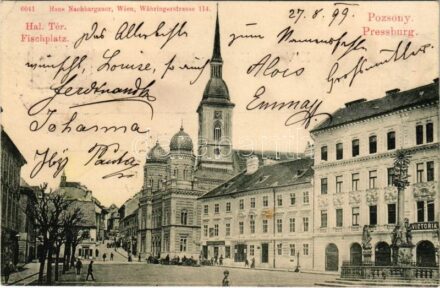 6041 Hans Nachbargauer, Wien, Währingerstrasse 114.
Hal. Tér.
Fischplatz.
27. 8. 99
Pozsony.
Pressburg.
das Allerbeste
zum Namensfeste
wünscht, Louise,
Alois
Großmutter.
Ferdinand
Emmy
Johanna
VICTORIA